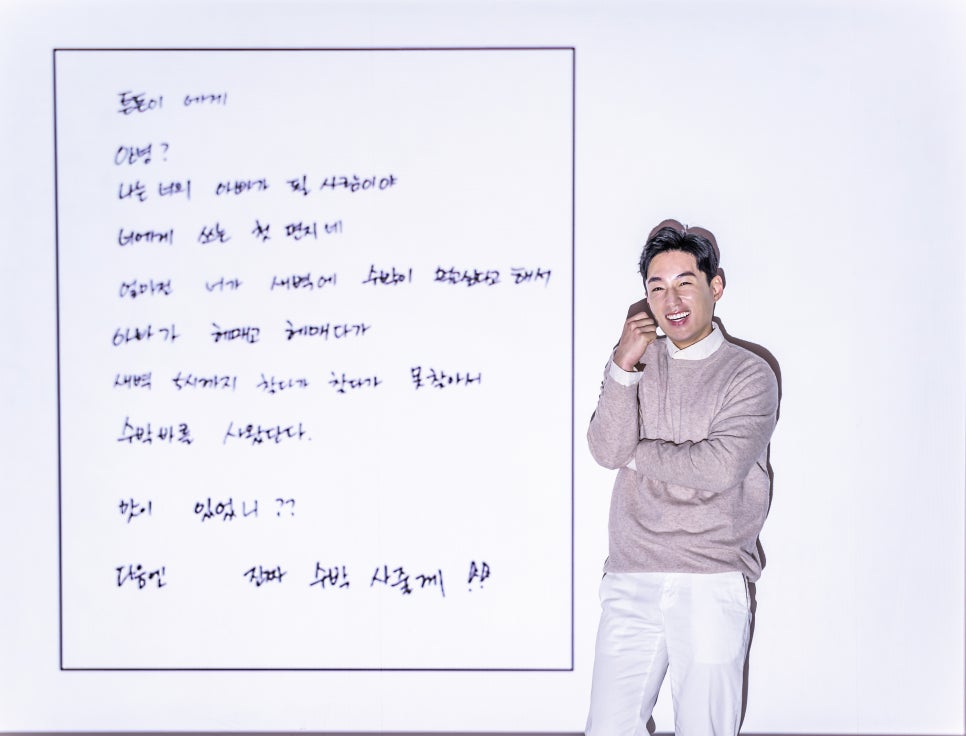 튼튼이 에게
안녕?
나는 너의 아빠가 될 사람이야
너에게 쓰는 첫 편지네
얼마전 너가 새벽에 수박이 먹고싶다고 해서
아빠가 헤매고 헤매다가
새벽 5시까지 찾다가 찾다가 못찾아서
수박바를 사왔단다.
맛이 있었니??
다음엔 진짜 수박 사줄게!!